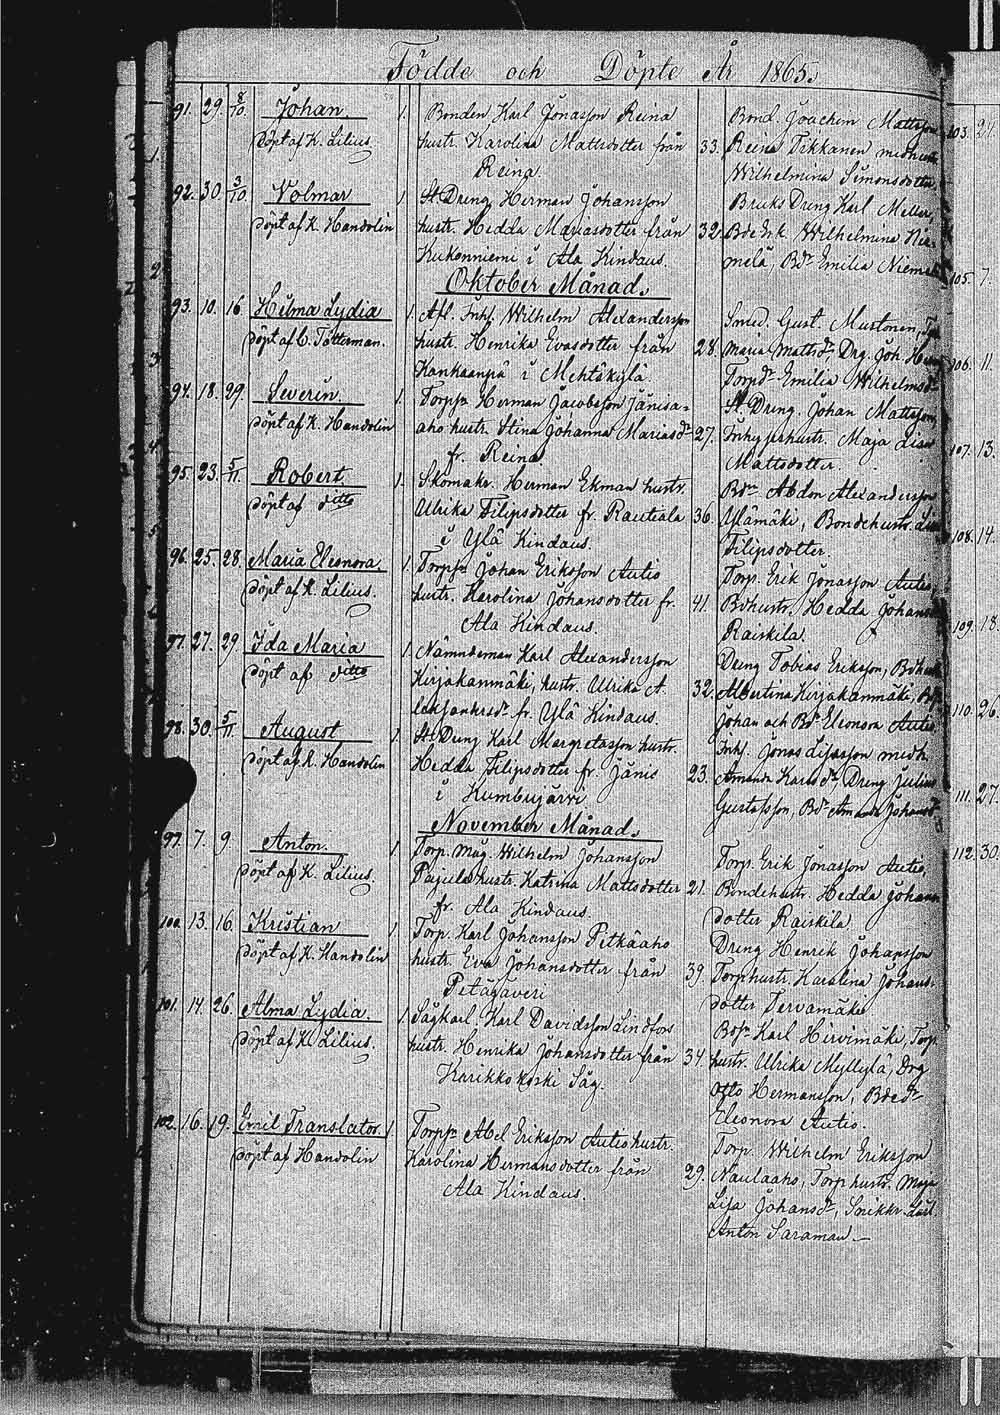 Födde och Döpte År 1865.
91. 29. 8/10. Johan. 1. Bonden Karl Jonasson Reina Bond. Joachim Mattsson
Döpt af K. Lilius. hustr. Karolina Mattsdotter från 33. Reina Tikkanen med hustr
Reina. Wilhelmina Simonsdotter,
92. 30. 3/10. Volmar 1. St. Dreng Herman Johansson Bruks Dreng Karl Meller,
Döpt af K. Handolin hustr. Hedda Mariasdotter från 32. Wilhelmina Nie-
Kukonniemi i Ala Kindaus. melä, Bdr Emilia Niemelä
Oktober Månad.
93. 10. 16. Hilma Lydia 1. Afl. Inh. Wilhelm Alexandersson Smed. Gust. Mustonen,
Döpt af C. Tötterman. hustr. Henrika Evasdotter från 28. Maria Mattsdr Drg. Joh.
Kankaanpä i Mehtäkylä. Torpdr Emilia Wilhelmsdr
94. 18. 29. Severin. 1. Torppr Herman Jacobsson Jänisa- St. Dreng. Johan Mattsson,
Döpt af K. Handolin aho hustr. Stina Johanna Mariasdr 27. Inhyseshustr. Maja Lisa
fr. Reina. Mattsdotter.
95. 23. 5/11. Robert. 1. Skomakr. Herman Ekman hustr. Abdon Alexandersson
Döpt af ditto Ulrika Filipsdotter fr. Rautiala 36. Ylämäki, Bondehustr. Lisa
i Ylä Kindaus. Filipsdotter.
96. 25. 28. Maria Eleonora. 1. Torppr Johan Eriksson Autio Torp. Erik Jonasson Autio,
Döpt af K. Lilius. hustr. Karolina Johansdotter fr. 41. Bdhustr. Hedda Johansd
Ala Kindaus. Raiskila.
97. 27. 29. Ida Maria 1. Nämndeman Karl Alexandersson Dreng Tobias Eriksson,
Döpt af ditto Kirjakanmäki, hustr. Ulrika A- 32. Albertina Kirjakanmäki,
leksandersdr. fr. Ylä Kindaus. Johan och Bdr Eleonora Autio
98. 30. 5/11. August 1. St. Dreng Karl Margretasson hustr. Inh. Jonas Lisasson medh.
Döpt af K. Handolin Hedda Filipsdotter fr. Jänis 23. Amanda Karlsdr, Dreng Julius
i Kumbujärvi. Gustafsson, Bdr Amanda Johansdr
November Månad.
99. 7. 9. Anton. 1. Torp. Måg. Wilhelm Johansson Torp. Erik Jonasson Autio,
Döpt af K. Lilius. Pajula hustr. Katrina Mattsdotter 21. Bondehustr. Hedda Johans
fr. Ala Kindaus. dotter Raiskila.
100. 13. 16. Kristian 1. Torp. Karl Johansson Pitkäaho Dreng Henrik Johansson
Döpt af K. Handolin hustr. Eva Johansdotter från 39. Torphustr. Karolina Johans-
Petäjäveri dotter Tervamäki
101. 14. 26. Alma Lydia. 1. Sågkarl. Karl Davidsson Lindfors Karl Hirvimäki, Torp.
Döpt af K. Lilius. hustr. Henrika Johansdotter från 34. hustr. Ulrika Myllylä, Drg
Karikkokoski Såg. Otto Hermansson,
Eleonora Autio.
102. 16. 19. Emil Translator. 1. Torppr Abel Eriksson Autio hustr. Torp. Wilhelm Eriksson
Döpt af Handolin Karolina Hermansdotter från 29. Naulaaho, Torphustr. Maja
Ala Kindaus. Lisa Johansdr, Snikkr. Karl
Anton Saraman.
103. 21.
105. 7.
106. 11.
107. 13.
108. 14.
109. 18.
110. 26.
111. 27.
112. 30.